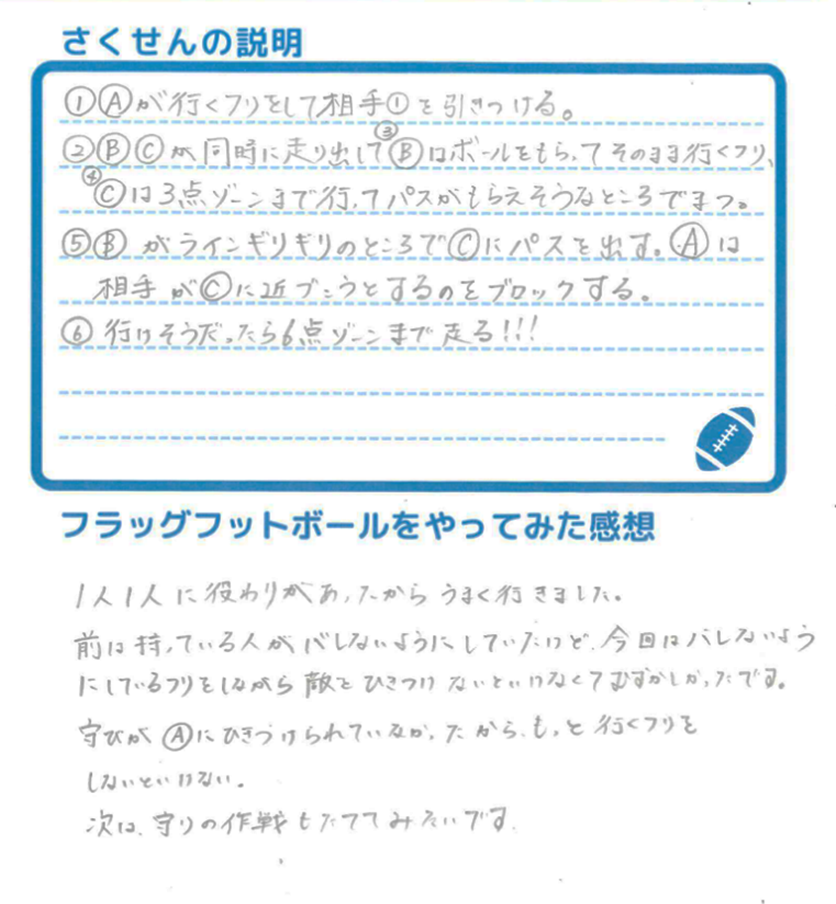 さくせんの説明
①Ⓐが行くフリをして相手①を引きつける。
②ⒷⒸが同時に走り出して③Ⓑはボールをもらってそのまま行くフリ、
④Ⓒは3点ゾーンまで行ってパスがもらえそうなところでまつ。
⑤Ⓑがラインギリギリのところで©にパスを出す。Ⓐは
相手がⒸに近づこうとするのをブロックする。
⑥行けそうだったら6点ゾーンまで走る!!!
フラッグフットボールをやってみた感想
1人1人に役わりがあったからうまく行きました。
前は持っている人がバレないようにしていたけど、今回はバレないよう
にしているフリをしながら敵をひきつけないといけなくてむずかしかったです。
守びがⒶにひきつけられていなかったから、もっと行くフリを
しないといけない。
次は、守りの作戦もたててみたいです。